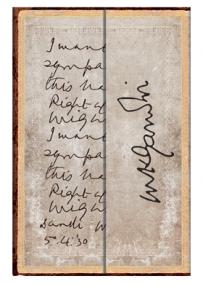 I want
sympa
this ba
Right of
Might
I want
sympa
this ba
Right of
Might
Sandi M
5.4.'30
MKGandhi